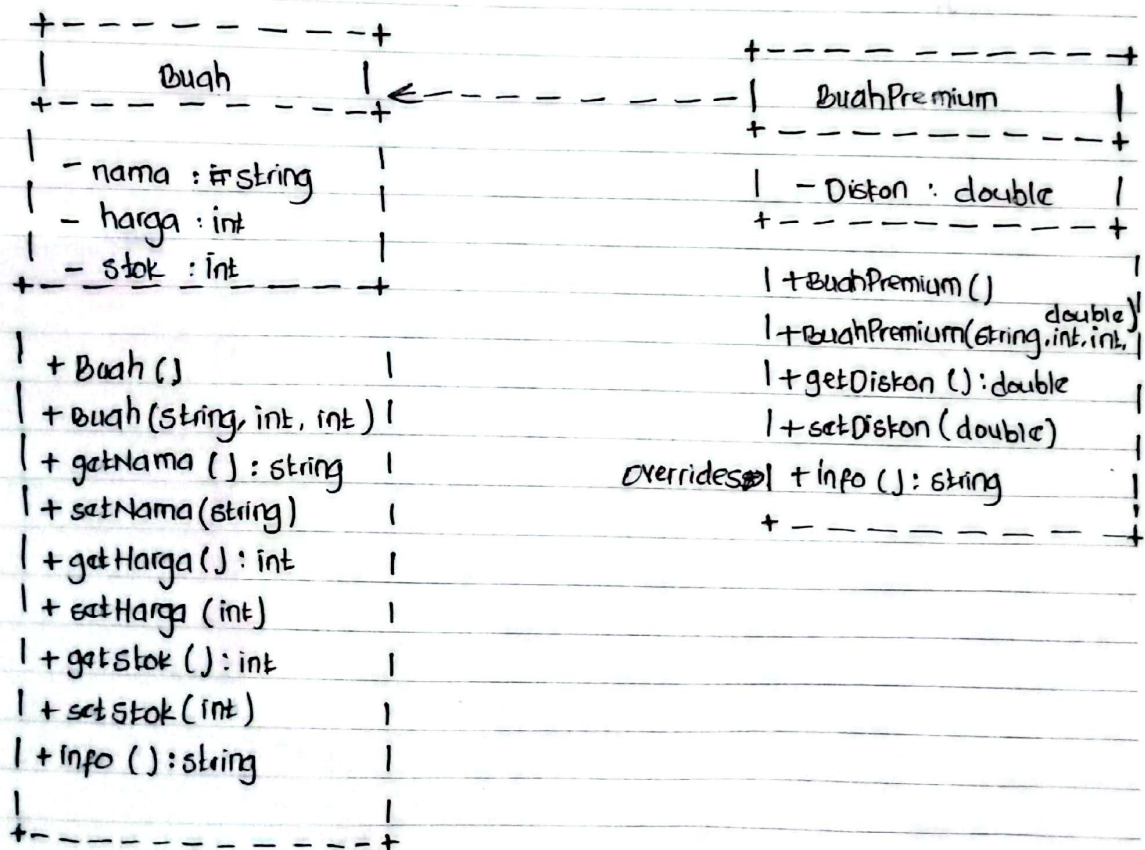 Buah
- nama : string
- harga : int
- stok : int
+ Buah ()
+ Buah (string, int, int)
+ getNama () : string
+ setNama (string)
+ getHarga () : int
+ setHarga (int)
+ getStok () : int
+ setStok (int)
+ info () : string
BuahPremium
- Diskon : double
+ BuahPremium ()
+ BuahPremium (string, int, int, double)
+ getDiskon () : double
+ setDiskon (double)
Overrides + info () : string